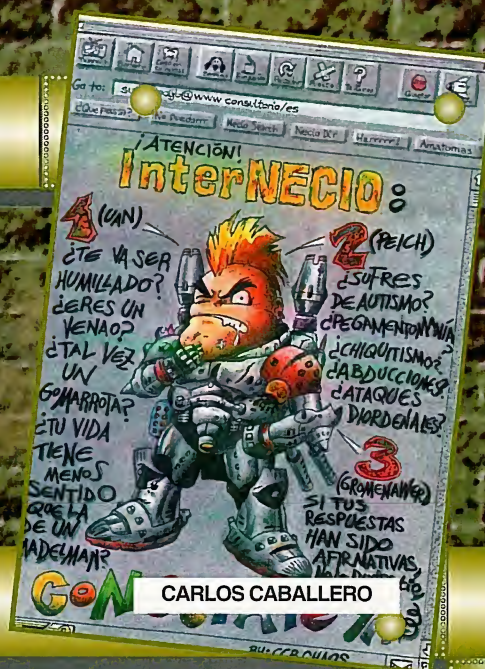 Go to:
www.consultorio/es
¿Qué pasa?
No Puedorrr
Necio Search
Necio Dir
Harrrrr!
Amatomas
¡ATENCIÓN!
InterNECIO:
1 (UAN)
¿TE VA SER
HUMILLADO?
¿ERES UN
VENAO?
¿TAL VEZ
UN
GOMARROTA?
¿TU VIDA
TIENE
MENOS
SENTIDO
QUE LA
DE UN
MADELMAN?
2 (PEICH)
¿SUFRES
DE AUTISMO?
¿PEGAMENTOMANIA?
¿CHIQUITISMO?
¿ABDUCCIONES?
¿ATAQUES
DIORDENALES?
3
(GROMENAWER)
SI TUS
RESPUESTAS
HAN SIDO
AFIRNATIVAS,
CARLOS CABALLERO